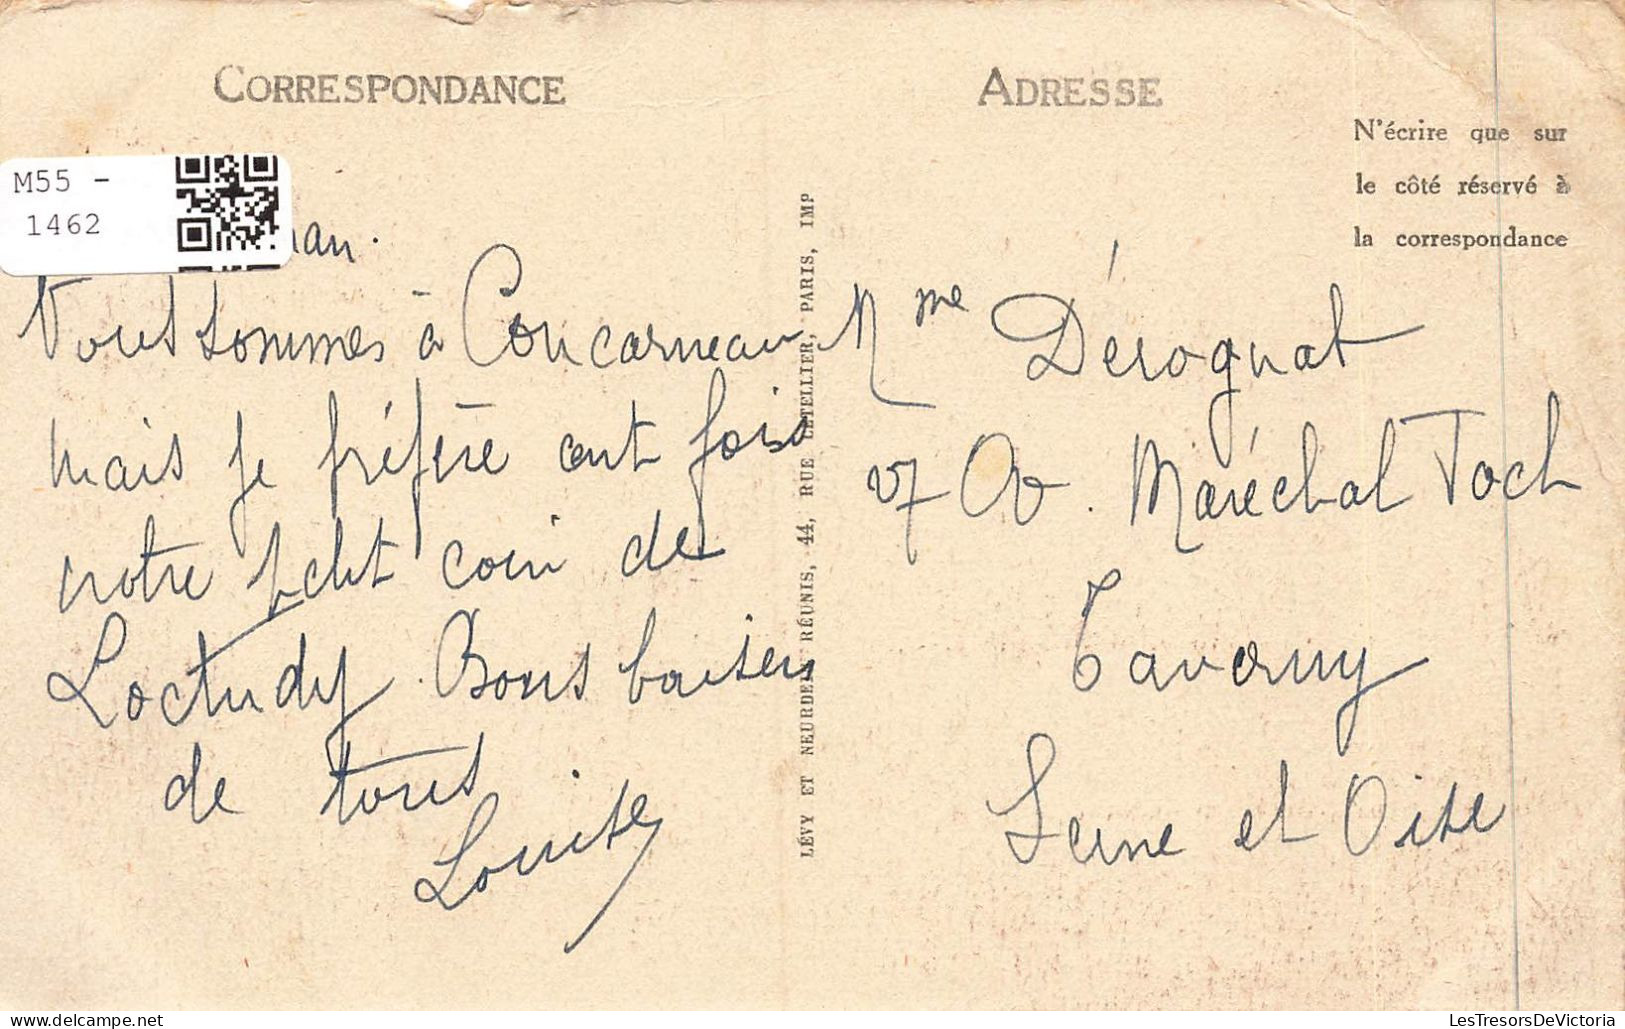 CORRESPONDANCE
M55 -
1462
man.
Nous sommes à Concarneau
mais je préfère cent fois
notre petit coin de
Loctudy. Bons baisers
de tous
Louise
LÉVY ET NEURDEIN RÉUNIS, 44, RUE LETELLIER, PARIS, IMP
ADRESSE
N'écrire que sur
le côté réservé à
la correspondance
Mme Dérognat
27 Av. Maréchal Foch
Taverny
Seine et Oise
LesTresorsDeVictoria
www.delcampe.net